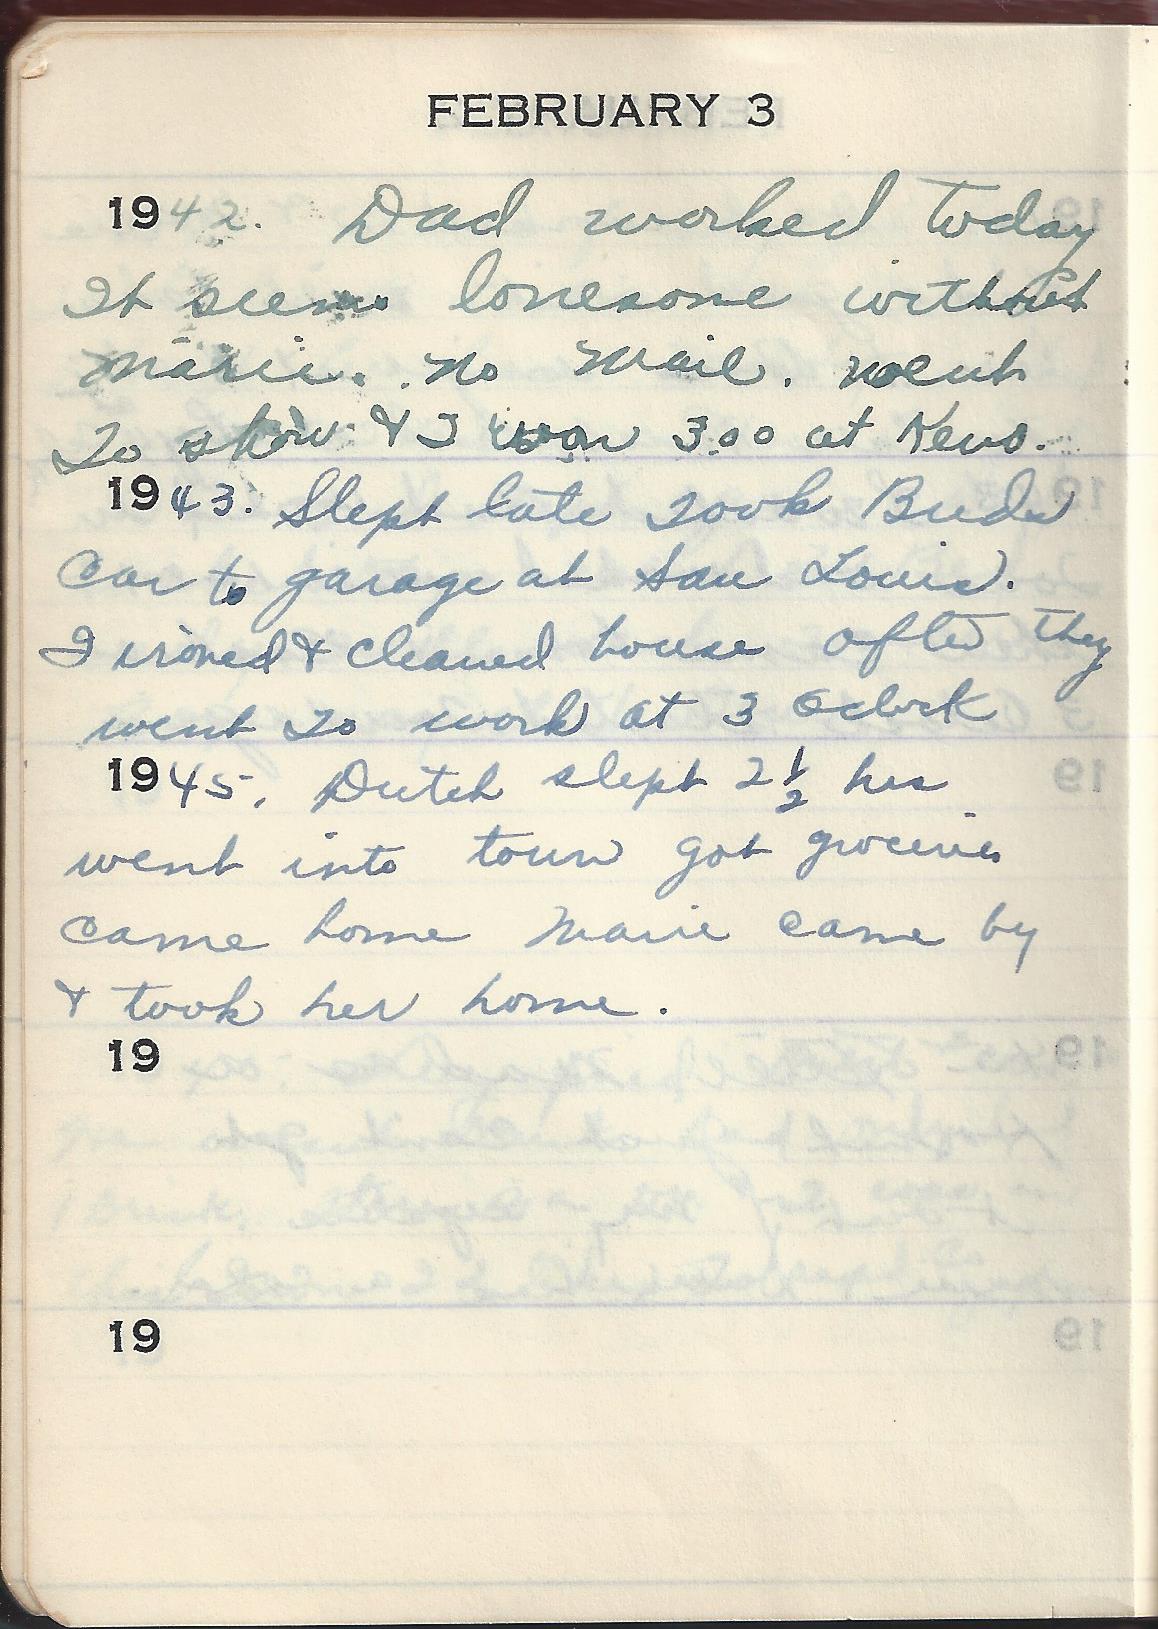 FEBRUARY 3
1942. Dad worked today
It seems lonesome without
Marie. No Mail. Went
To show & I won 3.00 at Keno.
1943. Slept late took Buds
Car to garage at San Louis.
I ironed & cleaned house after they
went to work at 3 oclock
1945. Dutch slept 2 1/2 hrs
went into town got groceries
came home Marie came by
& took her home.
19
19